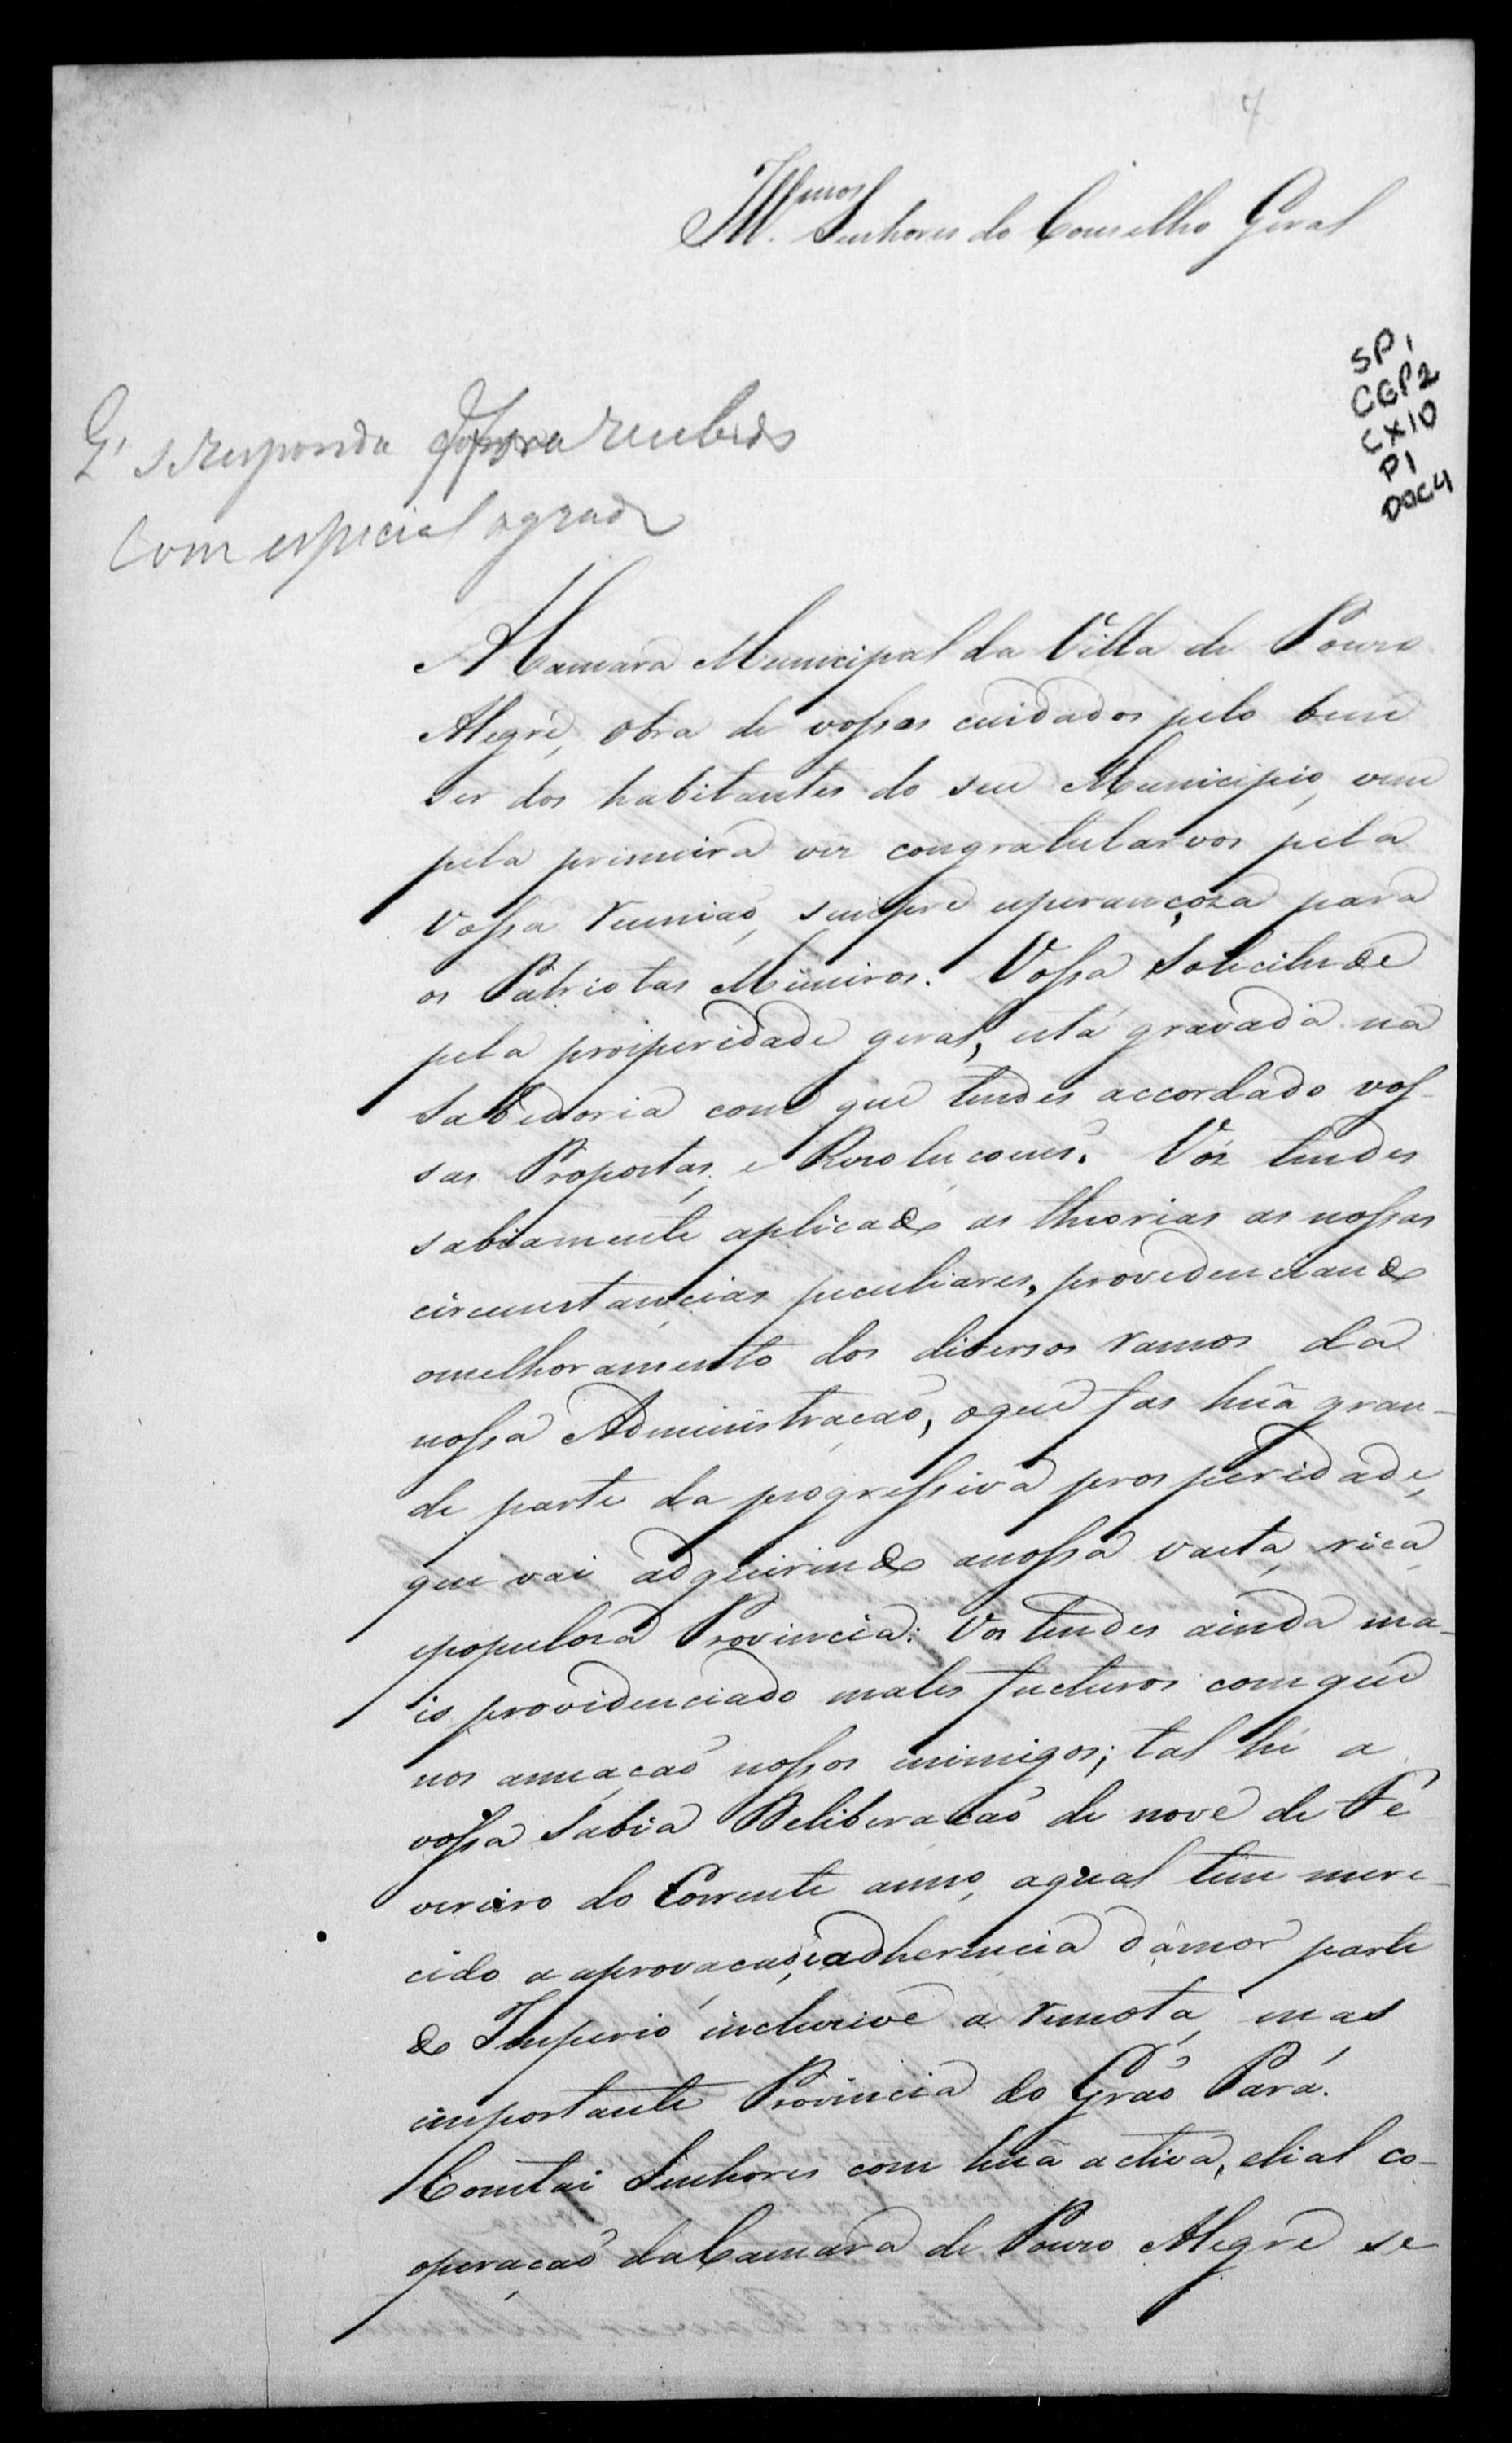 7
Ill.mos Senhores do Conselho Geral
SP1
CGP2
CX10
P1
DOC4
Q' s responda q fora recebido
Com especial agrado
A Camara Municipal da Villa de Pouzo
Alegre, obra de vossos cuidados pelo bem
ser dos habitantes do seu Municipio, vem
pela primeira vez congratularvos pela
Vossa reuniaõ, sempre esperançoza para
os Patriotas Mineiros. Vossa Solicitude
pela prosperidade geral, está gravada na
Sabedoria com que tendes accordado vos-
sas Propostas, e Resoluçoens. Vós tendes
sabiamente aplicado as theorias as nossas
circunstancias peculiares, providenciando
omelhoramento dos diversos ramos da
nossa Administraçaõ, oque fas huã gran-
de parte da progressiva prosperidade,
que vai adquirindo anossa vasta, rica,
epopuloza Provincia: Vos tendes ainda ma-
is providenciado males fucturos comque
nos ameaçaõ nossos inimigos; tal hé a
vossa Sabia Deliberaçaõ de nove de Fe
vereiro do Corrente anno, aqual tem mere-
cido a aprovaçaõ, eadherencia dámor parte
do Imperio incluzive a remota, mas
importante Provincia do Graõ Pará.
Contai Senhores com huã activa, elial co-
operaçaõ daCamara de Pouzo Alegre se